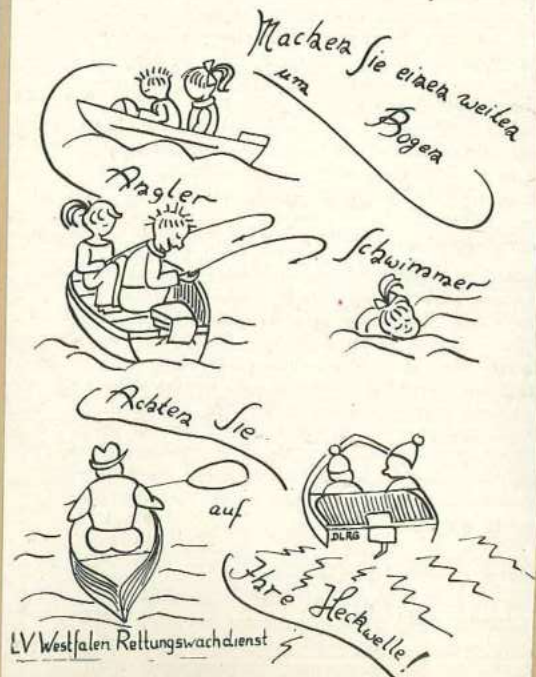 Machen Sie einen weiten
um Bogen
Angler
Schwimmer
Achten Sie
auf
DLRG
Ihre Heckwelle!
LV Westfalen Rettungswachdienst